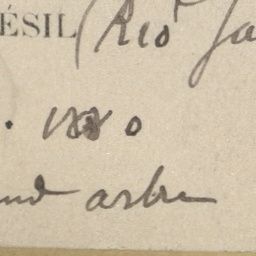 ÉSIL (Rio Ja
. 1880
and arbre